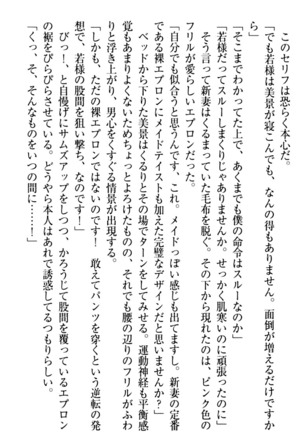 このセリフは恐らく本心だ。
「でも若様は美景が寝こんでも、なんの得もありません。面倒が増えるだけですか
ら」
「そこまでわかってた上で、あくまでも僕の命令はスルーなのか」
「若様だってスルーしまくりじゃありませんか。せっかく肌寒いのに頑張ったのに」
そう言って新妻はくるまっていた毛布を脱ぐ。その下から現れたのは、ピンク色の
フリルが愛らしいエプロンだった。
「自分でも似合うと思うんです、これ。メイドっぽい感じも出てますし。新妻の定番
である裸エプロンにメイドテイストも加えた完璧なデザインだと思いませんか？」
ベッドから下りた美景はくるりとその場でターンをしてみせる。運動神経も平衡感
覚もあまりよくないためちょっとよろけたものの、それでも腰の辺りのフリルがふわ
りと浮き上がり、男心をくすぐる情景が出現する。
「しかも、ただの裸エプロンではないのです！　敢えてパンツを穿くという逆転の発
想で、若様の股間を狙い撃ち、なのです！」
びっ！、と自慢げにサムズアップをしつつ、かろうじて股間を覆っているエプロン
の裾をぴらぴらさせている。どうやら本人はあれで誘惑してるつもりらしい。
「くっ、そ、そんなものをいつの間に……！」